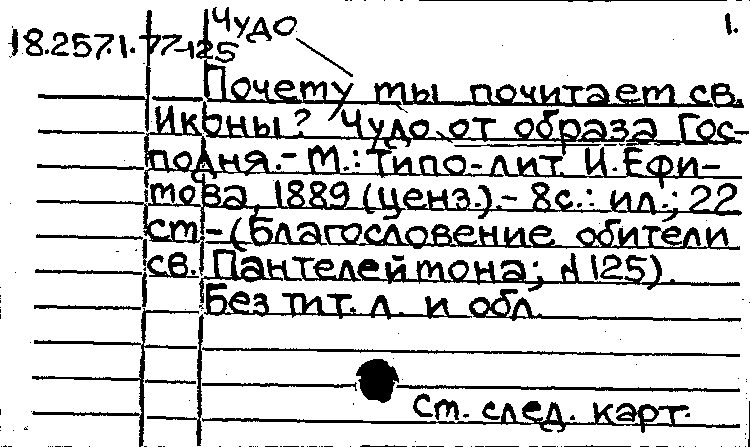 Чудо
1.
18.257.1.77-125
Почему ты почитаем св.
Иконы? Чудо от образа Гос-
подня.- М.: Типо-лит. И.Ефи-
мова, 1889 (ценз.).- 8с.: ил.; 22
см-(Благословение обители
св. Пантелеймона; №125).
Без тит. л. и обл.
См. след. карт.